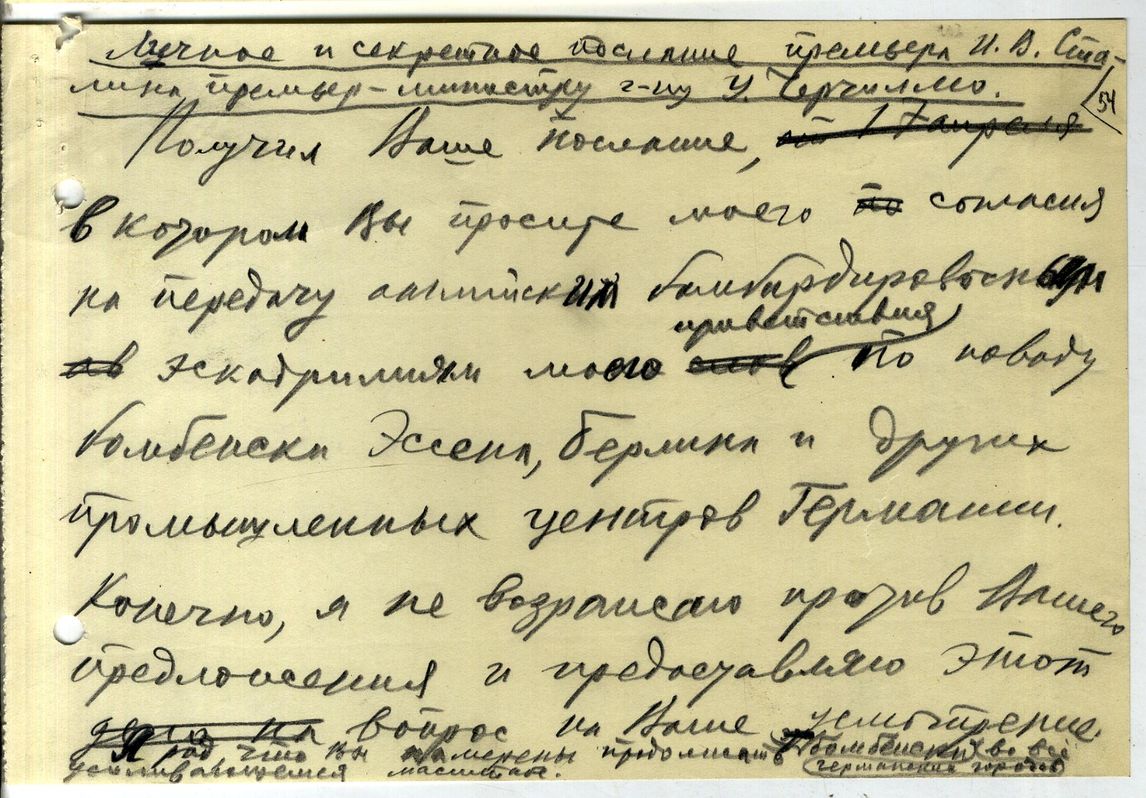 Личное и секретное послание премьера И. В. Ста-
лина премьер-министру г-ну У. Черчиллю.
54
Получил Ваше послание, от 17 апреля
в котором Вы просите моего по согласия
на передачу английским бомбардировочным
приветствия
эскадрильям моего по поводу
бомбежки Эссена, Берлина и других
промышленных центров Германии.
Конечно, я не возражаю против Вашего
предложения и предоставляю этот
вопрос на Ваше усмотрение.
Я рад что Вы намерены продолжать бомбежки во все
усиливающемся масштабе. германских городов